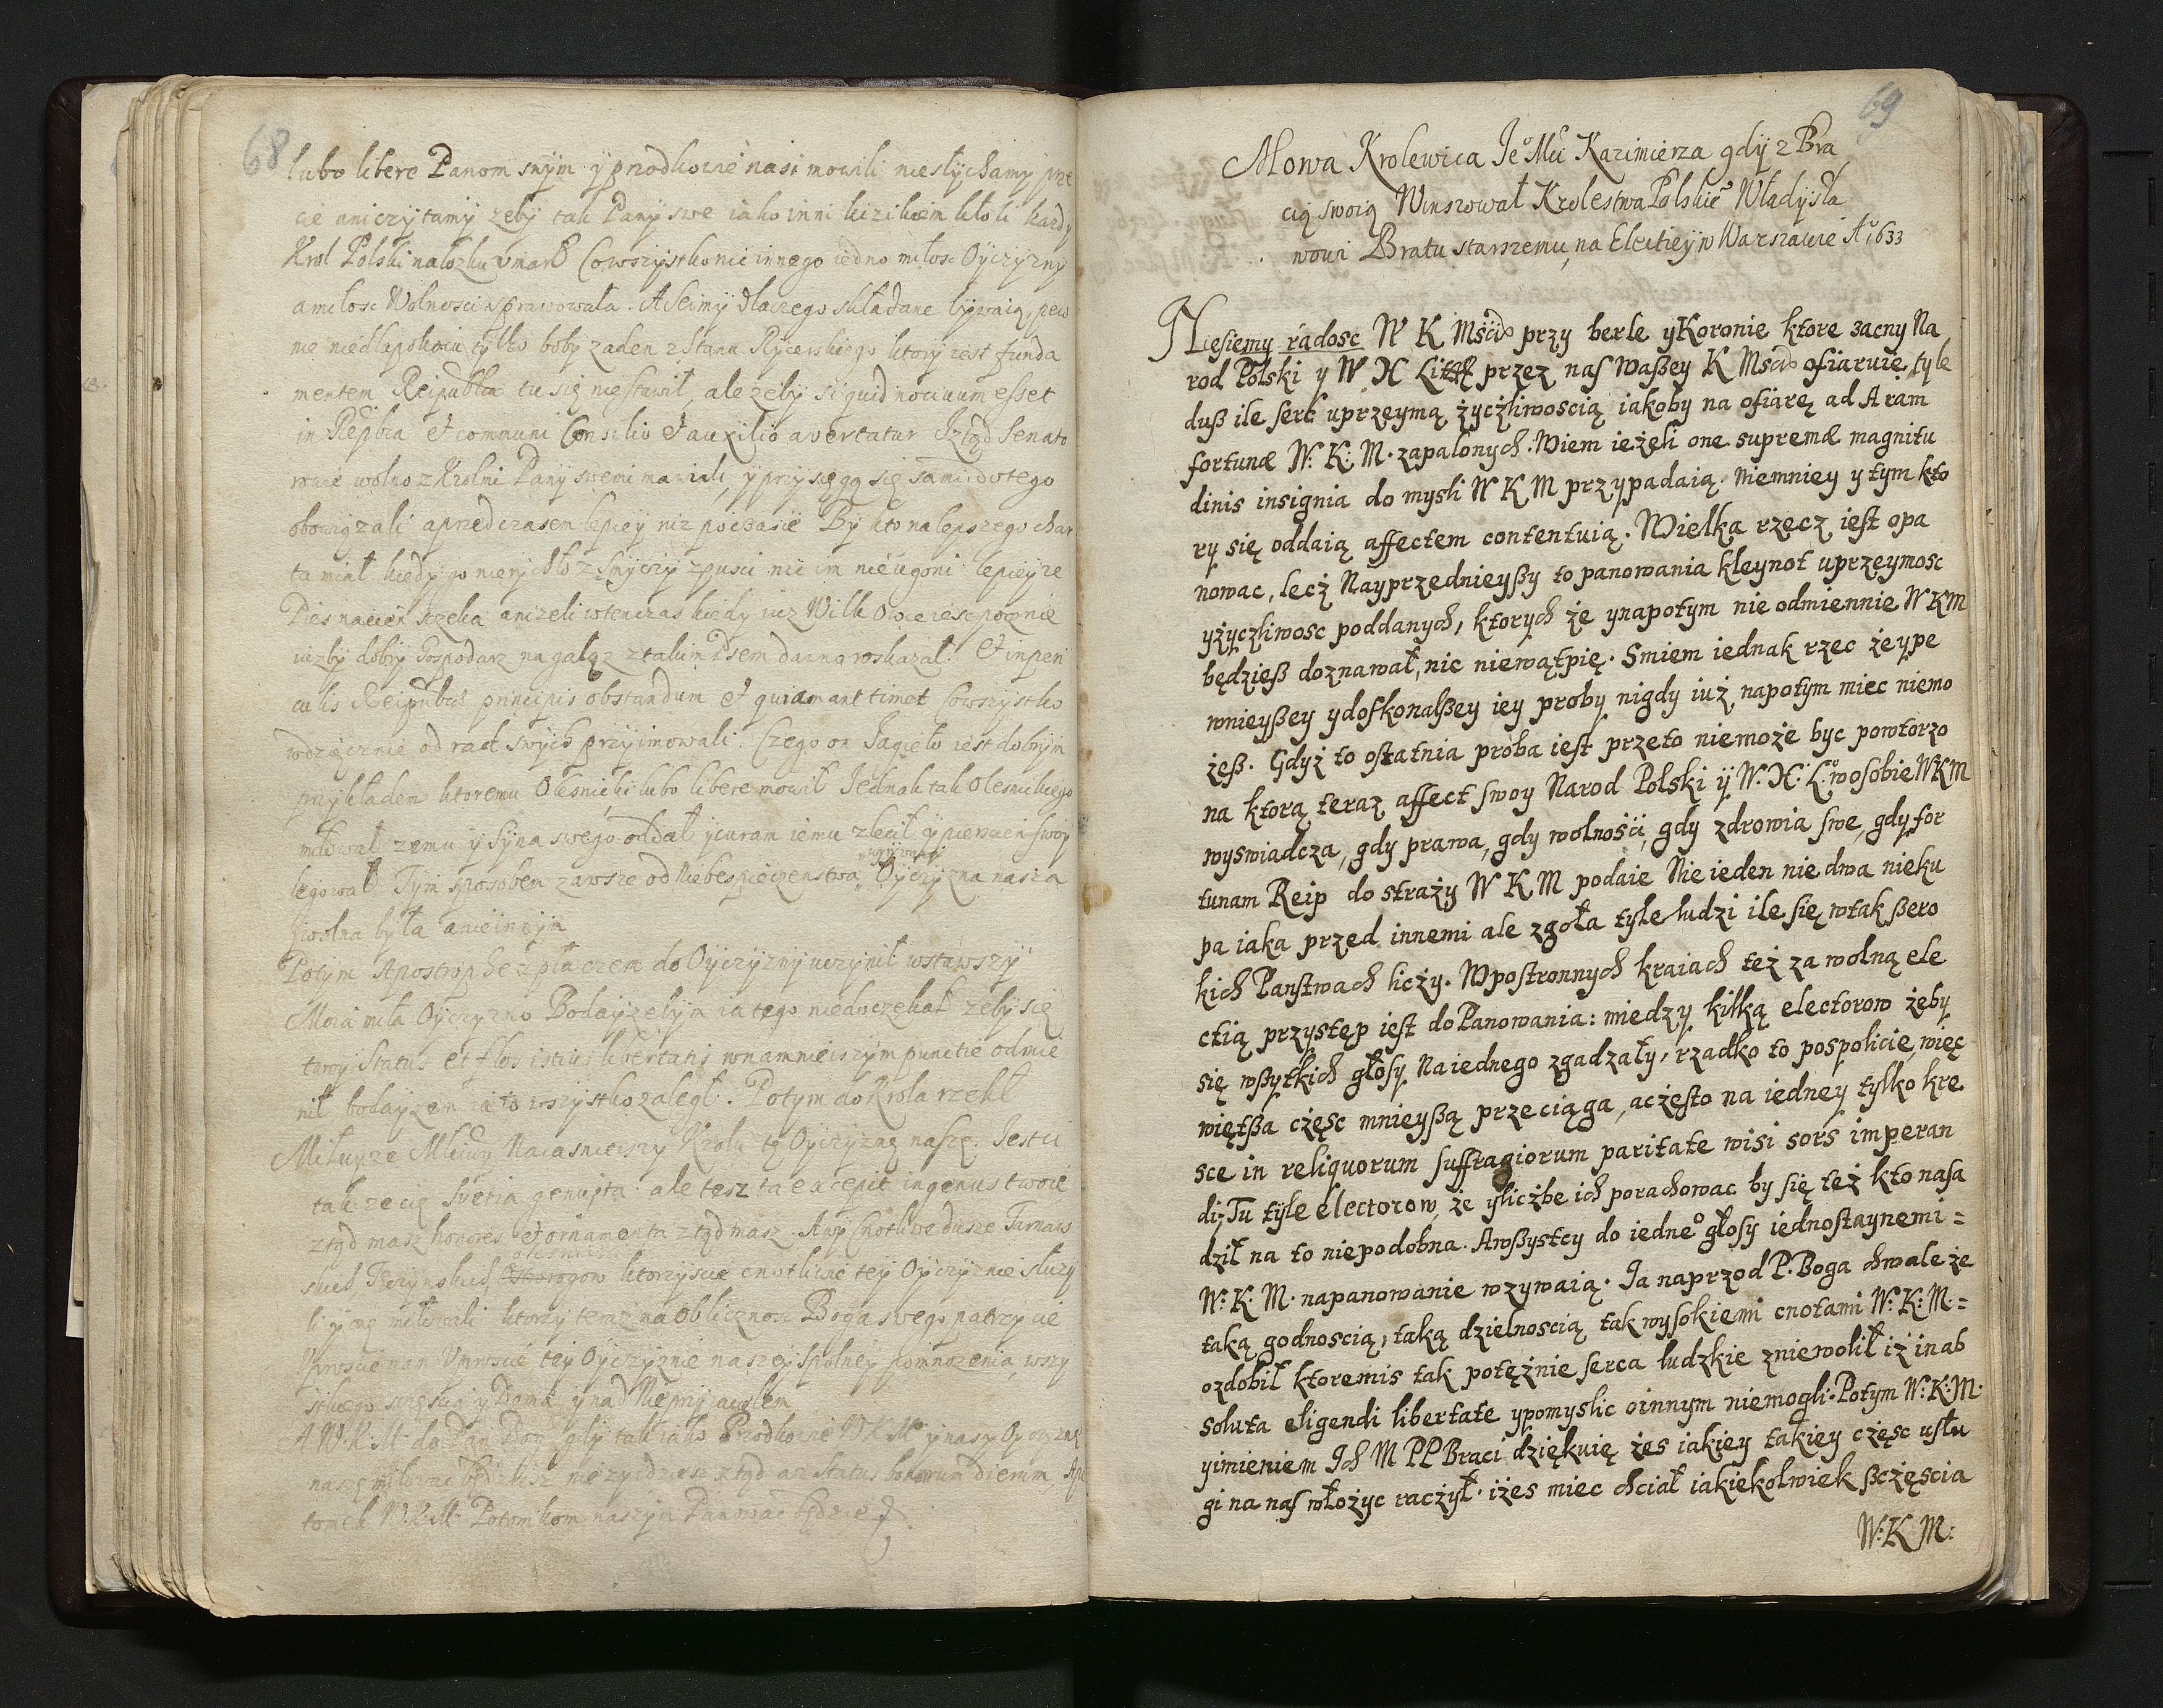 68
lubo libere Panom swym y przodkowie nasi mowili nie słychamy prze
cie ani czytamy zeby tak Pany swe iako inni kłoli kazdy
Krol Polski na łozku vmarł Co wszystko nic innego iedno miłosc Oyczyzny
a miłosc Wolnosci sprawowała. A Seimy dlaczego składane bywaią, pew
nie nie dla pokoiu tylko boby zaden z Stanu Rycerskiego ktory iest funda
mentem Reipublicae tu się nie stawił, ale zeby si quid nocuum esset
in Repbca et communi Consilio et auxilio avertatur Sztąd Senato
rowie wolno z Krolmi Pany swemi mawiali, y przysięgą się sami do tego
obowiązali a przed czasem lepiey niz po czasie By kto nalepszego char
ta miał kiedy go nierychło z smyczy zpusci nic im nie ugoni lepiey ze
Pies na cien szczeka anizeli wtenczas kiedy iuz Wilk Owce iesc pocznie
iuzby dobry Gospodarz na gałąz z takim Psem darno roskazał. Et in peri
culis Reipubcae principiis obstandum et qui amant timet Co wszystko
wdzięcznie od rad swych przyimowali. Czego on Jagieło iest dobrym
przykładem ktoremu Olesnicki lubo libere mowił Jednak tak Olesnickiego
miłował ze mu y Syna swego oddał y curam iemu zlecił y piercien swoy
legował Tym sposobem zawsze od Niebespieczenstwa Oyczyzna nasza
wolna była
Potym Apostrophe z płaczem do Oyczyzny uczynił wstawszy
Moia miła Oyczyzno Bodayzebym ia tego niedoczekał zeby się
twoy Status et flos istius libertatis w namnieiszym punctie odmie
nił bodayzem ia to wszystko zaległ. Potym do Krola rzekł
Miłuyze Mciwy Naiasnieiszy Krolu tę Oyczyznę naszę. Jest ci
tak ze cię Svetia genuit a ale tesz ta excepit in genus twoie
ztąd masz honores et ornamenta ztąd masz. A wy Cnotliwe dusze Tarnaws
skich, Tęczynskich, ktorzyscie cnotliwie tey Oyczyznie słuzy
li y ię miłowali ktorzy teraz na Obliczność Boga swego patrzycie
Vproscie nam Vmoscie tey Oyczyznie naszey spolney pomnozenia, wszy
stkiego szczęscia y Doma y nad Nieprzyiacielem
A W. K. M. da Pan Bog gdy tak iako Przodkowie W K M y naszy Oyczyznę
naszę miłowac będziesz nie zyidziesz ztąd az Status bonorum diem
tomek W. K. M. Potomkom naszym Panowac będzie
69
Mowa Krolewica Je° Mci Kazimierza gdy z Bra
cią swoią Winszował Krolestwa Polskie° Władysła
wowi Bratu starszemu, na Electiey w Warszawie A° 1633
Niesiemy radosc W K Msci przy berle y Koronie ktore zacny Na
rod Polski y W X Litt przez nas Waßey K Msci ofiaruie, tyle
duß ile serc uprzeymą życzliwoscią iakoby na ofiarę ad Aram
fortunæ W: K: M. zapalonych. Wiem ieżeli one supremæ magnitu
dinis insignia do mysli W K M przypadaią. Niemniey y tym kto
ry się oddaią affectem contentuią. Wielka rzecz iest opa
nowac, lecz Nayprzednieyßy to panowania kleynot uprzeymosc
y życzliwosc poddanych, ktorych że y napotym nie odmiennie W K M
będzieß doznawał, nic niewątpię. Smiem iednak rzec że y pe
wnieyßey y doskonalßey iey proby nigdy iuż napotym miec niemo
żeß. Gdyż to ostatnia proba iest przeto niemoże byc powtorzo
na ktorą teraz affect swoy Narod Polski y W. X. L° w osobie W K M
wyswiadcza, gdy prawa, gdy wolnosci, gdy zdrowia swe, gdy for
tunam Reip do straży W K M podaie Nie ieden nie dwa nieku
pa iaka przed innemi ale zgoła tyle ludzi ile się w tak ßero
kich Panstwach liczy. W postronnych kraiach też za wolną ele
ctią przystęp iest do Panowania: miedzy kilką electorow żeby
się wßytkich głosy Na iednego zgadzały, rzadko to pospolicie, więc
więtßa częsc mnieyßą przeciąga, a często na iedney tylko kre
sce in reliquorum suffragiorum paritate wisi sors imperan
di. Tu tyle electorow, że y liczbe ich porachowac by się też kto nasa
dził na to niepodobna. A wßystcy do iedne° głosy iednostaynemi =
W: K: M. na panowanie wzywaią. Ja naprzod P. Boga chwale że
taką godnoscią, taką dzielnoscią tak wysokiemi cnotami W: K: M: =
ozdobił ktoremis tak potężnie serca ludzkie zniewolił iż in ab
soluta eligendi libertate y pomyslic o innym niemogli. Potym W: K: M.
y imieniem Ich M PP Braci dziękuię żes iakiey takiey częsc usłu
gi na nas włożyc raczył. iżes miec chciał iakiekolwiek ßczęscia
W: K M: